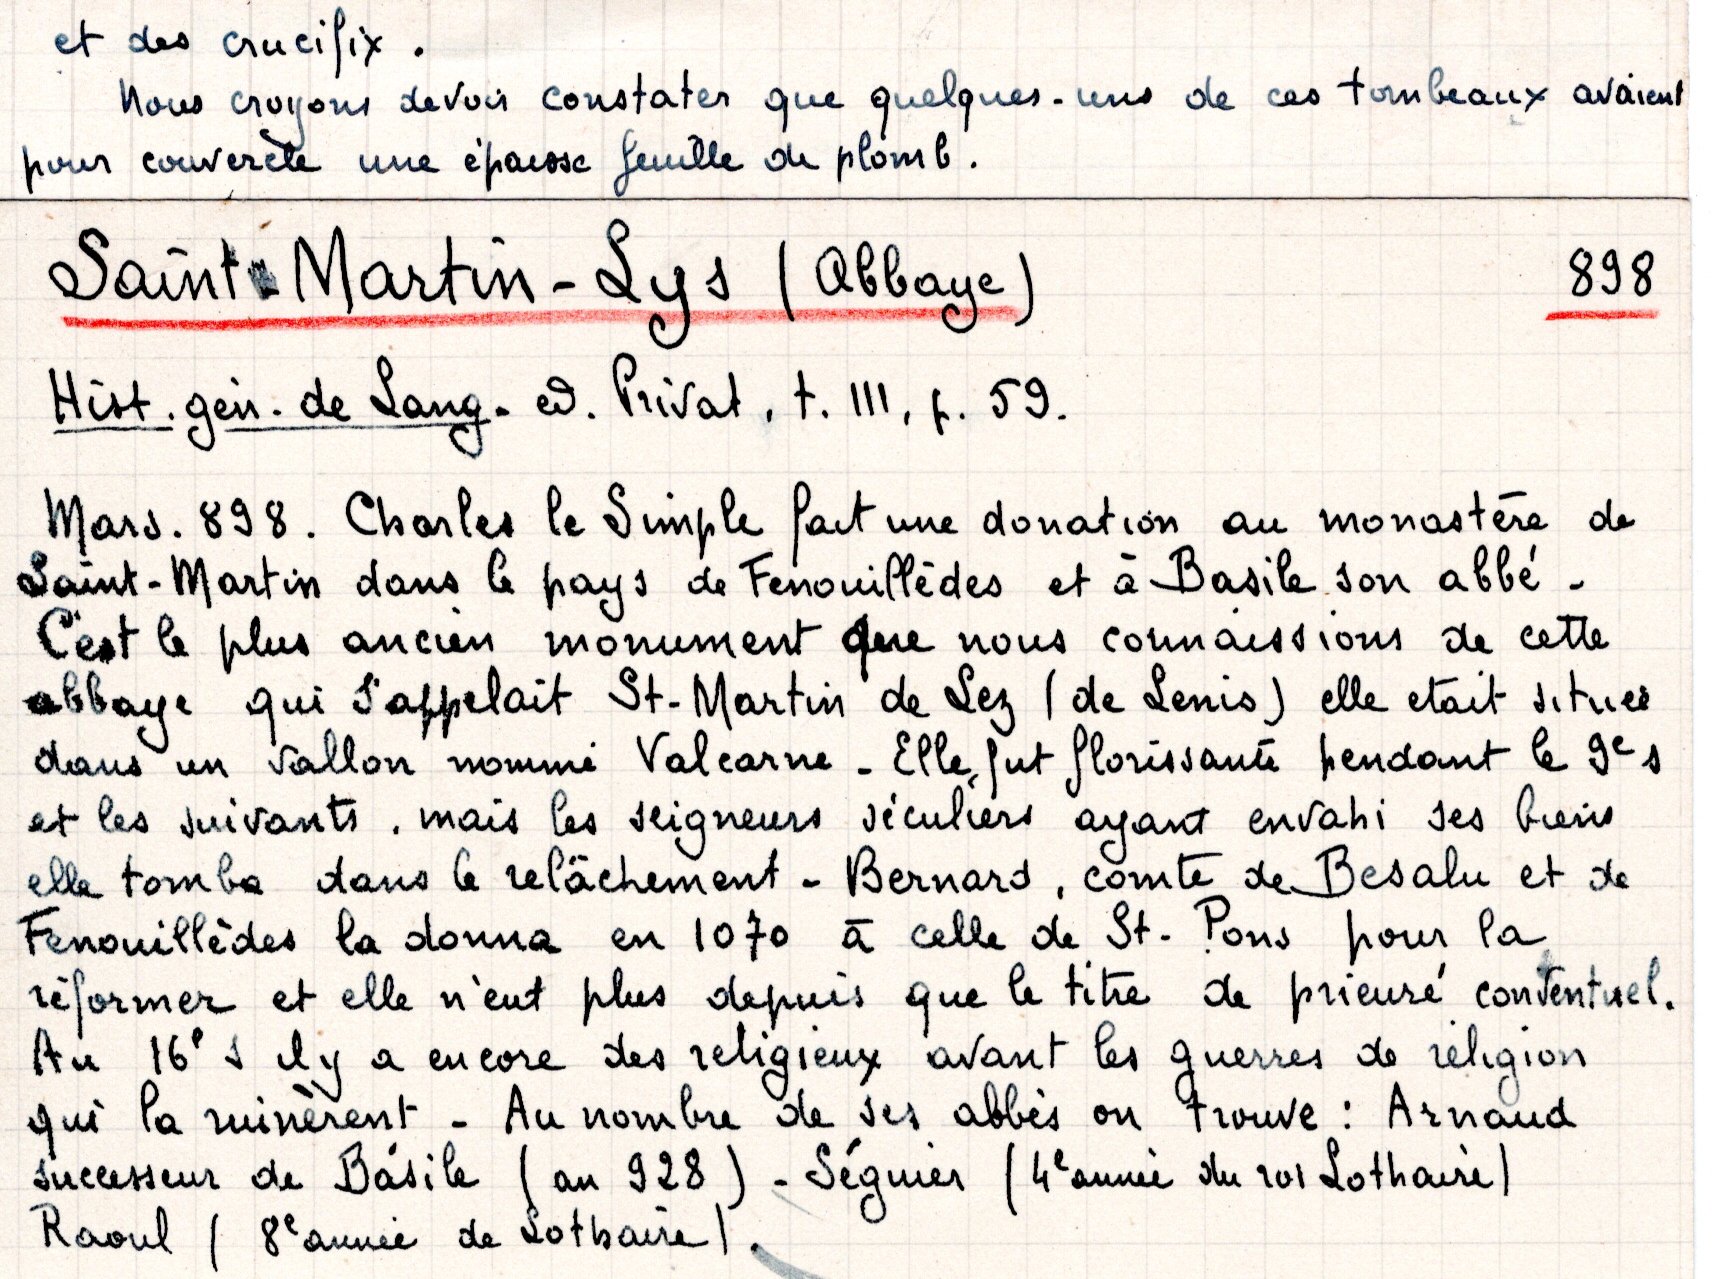 et des crucifix.
Nous croyons devoir constater que quelques-uns de ces tombeaux avaient
pour couvercle une épaisse feuille de plomb.
Saint-Martin-Lys (Abbaye) 898
Hist. gén. de Lang. ed. Privat, t. III, p. 59.
Mars. 898. Charles le Simple fait une donation au monastère de
Saint-Martin dans le pays de Fenouillèdes et à Basile son abbé -
C'est le plus ancien monument que nous connaissions de cette
abbaye qui s'appelait St-Martin de Lez (de Lenis) elle etait située
dans un vallon nommé Valcarne - Elle fut florissante pendant le 9e s
et les suivants, mais les seigneurs séculiers ayant envahi ses biens
elle tomba dans le relâchement - Bernard, comte de Besalu et de
Fenouillèdes la donna en 1070 à celle de St-Pons pour la
réformer et elle n'eut plus depuis que le titre de prieuré conventuel.
Au 16e s il y a encore des religieux avant les guerres de religion
qui la ruinèrent - Au nombre de ses abbés on trouve : Arnaud
successeur de Basile (an 928) - Séguier (4e année du roi Lothaire)
Raoul (8e année de Lothaire).